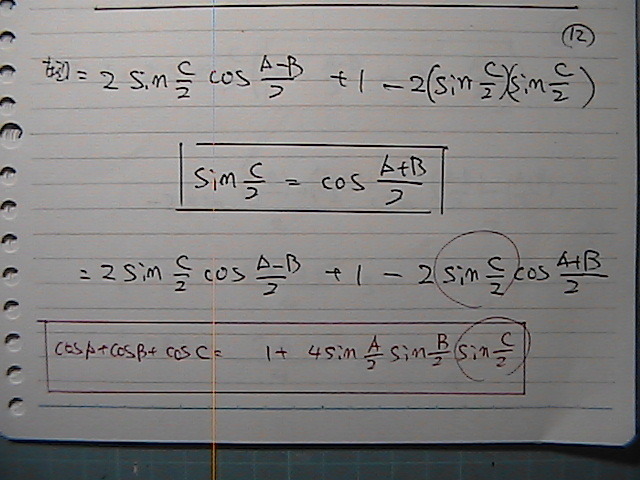 (12)
左辺 = 2 sin C/2 cos A-B/2 + 1 - 2(sin C/2)(sin C/2)
sin C/2 = cos A+B/2
= 2 sin C/2 cos A-B/2 + 1 - 2 sin C/2 cos A+B/2
cosA+cosB+cosC = 1 + 4 sin A/2 sin B/2 sin C/2